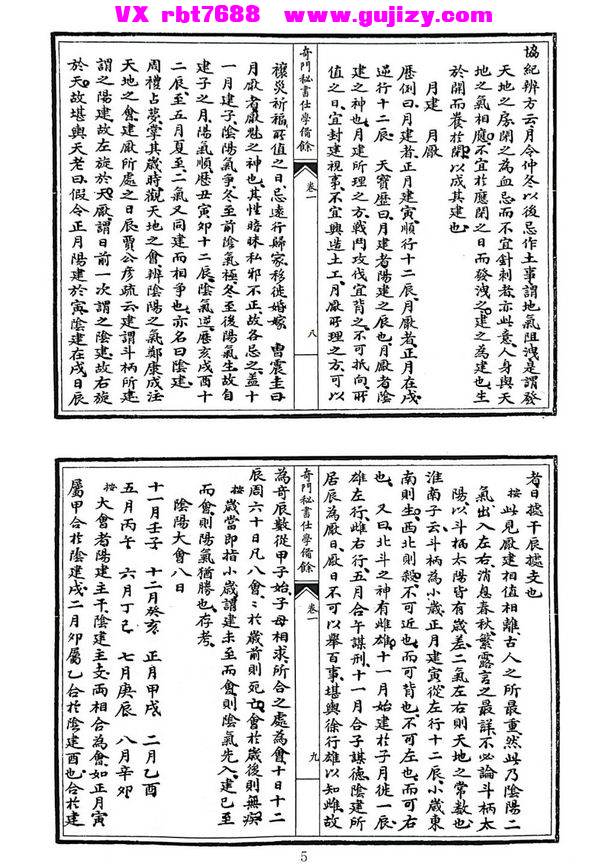 VX rbt7688  www.gujizy.com
協紀辨方云月令仲冬以後忌作土事謂地氣阻洩是謂發
天地之房閉之為血忌而不宜針刺者亦此意人身與天
地之氣相應不宜於應閉之日而發洩之建之為建也生
於開而養於閉以成其建也
月建　月厭
歷例曰月建者正月建寅順行十二辰月厭者正月在戌
逆行十二辰　天寶歷曰月建者陽建之辰也月厭者陰
建之神也月建所理之方戰鬥攻伐宜背之不可抵向所
值之日宜封建視事不宜興造土工月厭所理之方可以
奇門秘書仕學備餘
卷一
八
禳災祈福所值之日忌遠行歸家移徙婚嫁　曹震圭曰
月厭者厭魅之神也其性暗昧私邪不正故各忌之蓋十
一月建子陰陽氣爭冬至前陰氣極冬至後陽氣生故自
建子之月陽氣順歷丑寅卯十二辰陰氣逆歷亥戌酉十
二辰至五月夏至二氣又同建而相爭也亦名曰陰建
周禮占夢掌其歲時觀天地之會辨陰陽之氣鄭康成注
天地之會建厭所處之日辰賈公彥疏云建謂斗柄所建
謂之陽建故左旋於天厭謂日前一次謂之陰建故右旋
於天故堪輿天老曰假令正月陽建於寅陰建在戌日辰
者日據干辰據支也
按此見厭建相值相離古人之所最重然此乃陰陽二
氣出入左右消息春秋繁露言之最詳不必論斗柄太
陽以斗柄太陽皆有歲差二氣左右則天地之常數也
淮南子云斗柄為小歲正月建寅從左行十二辰小歲東
南則生西北則殺不可近也而可背也不可左也而可右
也　又曰北斗之神有雌雄十一月始建於子月徙一辰
雄左行雌右行五月合午謀刑十一月合子謀德陰建所
居辰為厭日厭日不可以舉百事堪輿徐行雄以知雌故
奇門秘書仕學備餘
卷一
九
為奇辰數從甲子始子母相求所合之處為會十日十二
辰周六十日凡八會會於歲前則死亡會於歲後則無殃
按歲當即指小歲謂建未至而會則陰氣先入建已至
而會則陽氣猶勝也存考
陰陽大會八日
十一月壬子　十二月癸亥　正月甲戌　二月乙酉
五月丙午　六月丁巳　七月庚辰　八月辛卯
按大會者陽建主干陰建主支兩相合為會如正月寅
屬甲合於陰建戌二月卯屬乙合於陰建酉也合於建
5